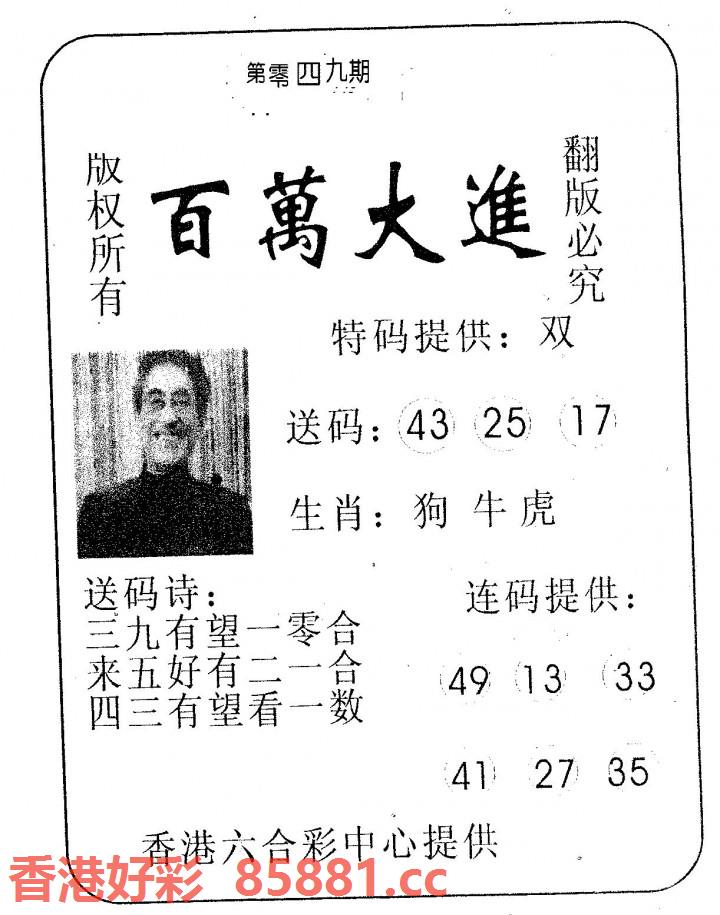 第零四九期
版权所有
百萬大進
翻版必究
特码提供：双
送码：43 25 17
生肖：狗 牛 虎
送码诗：
三九有望一零合
来五好有二一合
四三有望看一数
连码提供：
49 13 33
41 27 35
香港六合彩中心提供
香港好彩 85881.cc